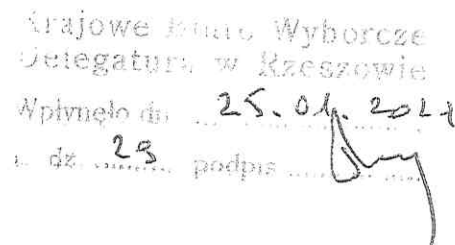 Krajowe Biuro Wyborcze
Delegatura w Rzeszowie
Wpłynęło dn. 25.01.2021
L. dz. 29 podpis